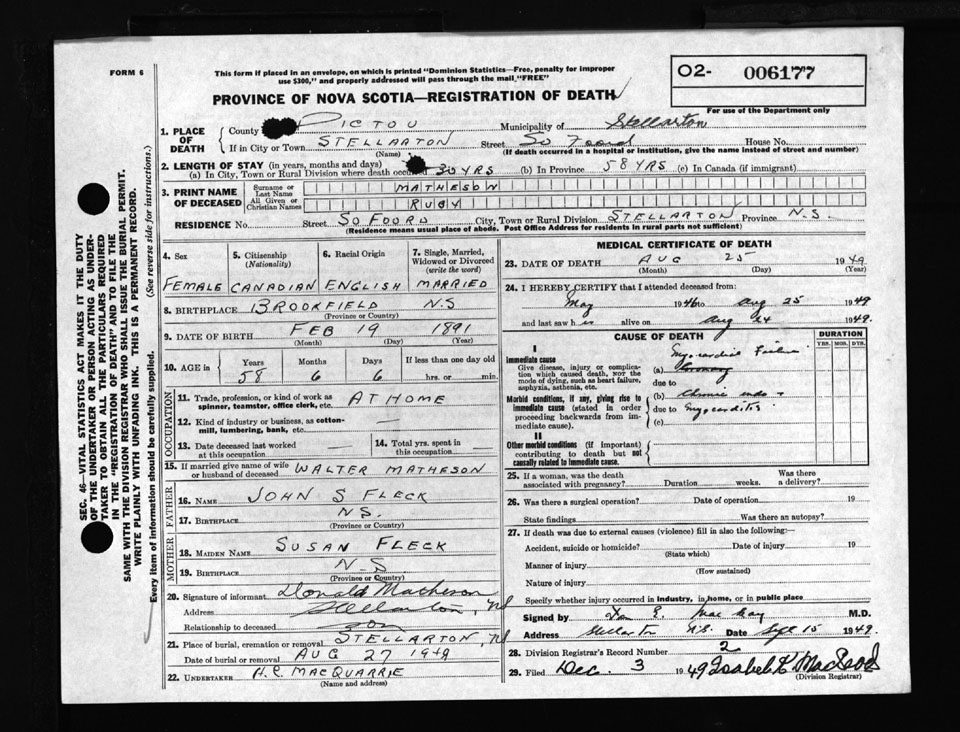 FORM 6
This form if placed in an envelope, on which is printed "Dominion Statistics—Free, penalty for improper
use $300," and properly addressed will pass through the mail "FREE"
O2- 006177
For use of the Department only
PROVINCE OF NOVA SCOTIA—REGISTRATION OF DEATH
1. PLACE OF DEATH
County PICTOU Municipality of Stellarton
If in City or Town STELLARTON Street So Foord House No.
(Name) (If death occurred in a hospital or institution, give the name instead of street and number)
2. LENGTH OF STAY (in years, months and days)
(a) In City, Town or Rural Division where death occurred 30 YRS (b) In Province 58 YRS (c) In Canada (if immigrant)
3. PRINT NAME OF DECEASED
Surname or Last Name MATHESON
All Given or Christian Names RUBY
RESIDENCE No. Street SO FOORD City, Town or Rural Division STELLARTON Province N.S.
(Residence means usual place of abode. Post Office Address for residents in rural parts not sufficient)
4. Sex
5. Citizenship (Nationality)
6. Racial Origin
7. Single, Married, Widowed or Divorced (write the word)
FEMALE CANADIAN ENGLISH MARRIED
8. BIRTHPLACE BROOKFIELD N.S
(Province or Country)
9. DATE OF BIRTH FEB 19 1891
(Month) (Day) (Year)
10. AGE in Years Months Days If less than one day old
58 6 6 hrs. or min.
OCCUPATION
11. Trade, profession, or kind of work as
spinner, teamster, office clerk, etc. AT HOME
12. Kind of industry or business, as cotton-
mill, lumbering, bank, etc.
13. Date deceased last worked
at this occupation
14. Total yrs. spent in
this occupation
15. If married give name of wife
or husband of deceased WALTER MATHESON
FATHER
16. NAME JOHN S FLECK
17. BIRTHPLACE N.S.
(Province or Country)
MOTHER
18. MAIDEN NAME SUSAN FLECK
19. BIRTHPLACE N.S
(Province or Country)
20. Signature of informant Donald Matheson
Address Stellarton, NS
Relationship to deceased Son
21. Place of burial, cremation or removal STELLARTON, NS
Date of burial or removal AUG 27 1949
22. UNDERTAKER H.C. MACQUARRIE
(Name and address)
MEDICAL CERTIFICATE OF DEATH
23. DATE OF DEATH AUG 25 1949
(Month) (Day) (Year)
24. I HEREBY CERTIFY that I attended deceased from:
May 1946 to Aug 25 1949
and last saw h alive on Aug 24 1949.
CAUSE OF DEATH
DURATION
YRS. MOS. DYS.
I
Immediate cause
Give disease, injury or complica-
tion which caused death, NOT the
mode of dying, such as heart failure,
asphyxia, asthenia, etc.
Myocardial Failure
(a) Coronary
due to
Morbid conditions, if any, giving rise to
immediate cause (stated in order
proceeding backwards from im-
mediate cause).
(b) Chronic endo &
due to Myocarditis
(c)
II
Other morbid conditions (if important)
contributing to death but not
causally related to immediate cause.
25. If a woman, was the death
associated with pregnancy? Duration weeks. Was there a delivery?
26. Was there a surgical operation? Date of operation 19
State findings Was there an autopsy?
27. If death was due to external causes (violence) fill in also the following:—
Accident, suicide or homicide? Date of injury 19
(State which)
Manner of injury
(How sustained)
Nature of injury
Specify whether injury occurred in industry, in home, or in public place
Signed by E. MacKay M.D.
Address Stellarton N.S. Date Sept 15 1949.
28. Division Registrar's Record Number 2
29. Filed Dec. 3 1949 Isabel K. MacLeod
(Division Registrar)
SEC. 46—VITAL STATISTICS ACT MAKES IT THE DUTY
OF THE UNDERTAKER OR PERSON ACTING AS UNDER-
TAKER TO OBTAIN ALL THE PARTICULARS REQUIRED
IN THE "REGISTRATION OF DEATH" AND TO FILE THE
SAME WITH THE DIVISION REGISTRAR WHO SHALL ISSUE THE BURIAL PERMIT.
WRITE PLAINLY WITH UNFADING INK. THIS IS A PERMANENT RECORD.
Every item of information should be carefully supplied. (See reverse side for instructions.)